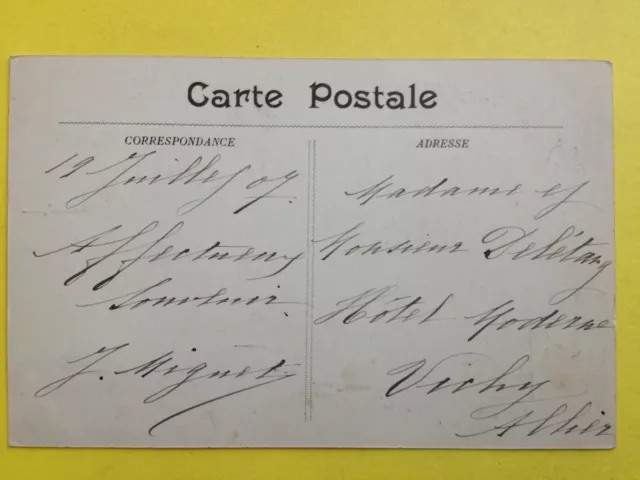 Carte Postale
CORRESPONDANCE
19 Juillet 07.
Affectueux
Souvenir
J. Miguet
ADRESSE
Madame et
Monsieur Delétang
Hôtel Moderne
Vichy
Allier